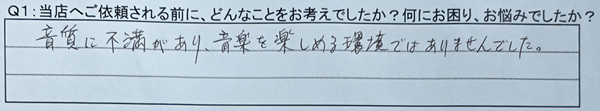 Q1:当店へご依頼される前に、どんなことをお考えでしたか？何にお困り、お悩みでしたか？
音質に不満があり、音楽を楽しめる環境ではありませんでした。